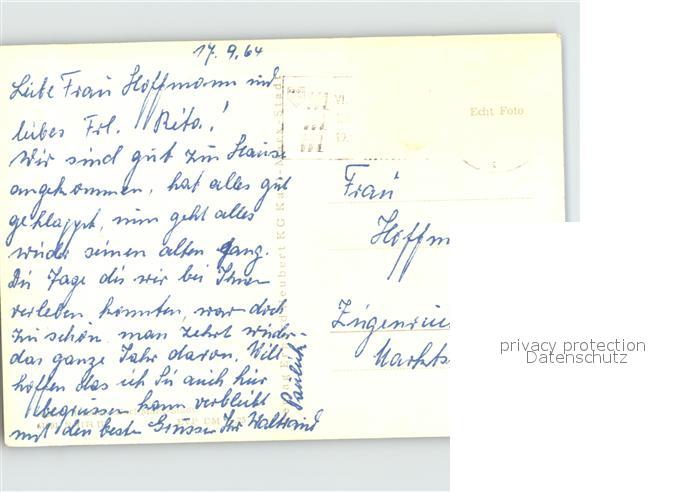 17.9.64
Liebe Frau Hoffmann und
liebes Frl. Rita!
Wir sind gut zu Hause
angekommen, hat alles gut
geklappt, nun geht alles
wieder seinen alten Gang.
Die Tage die wir bei Ihnen
verleben konnten, war doch
zu schön. man zehrt wieder
das ganze Jahr davon. Will
hoffen das ich Sie auch hier
begrüssen kann verbleibt
mit den besten Grüssen Ihr Waltraud
Echt Foto
Frau
Hoffm
Markts
privacy protection
Datenschutz